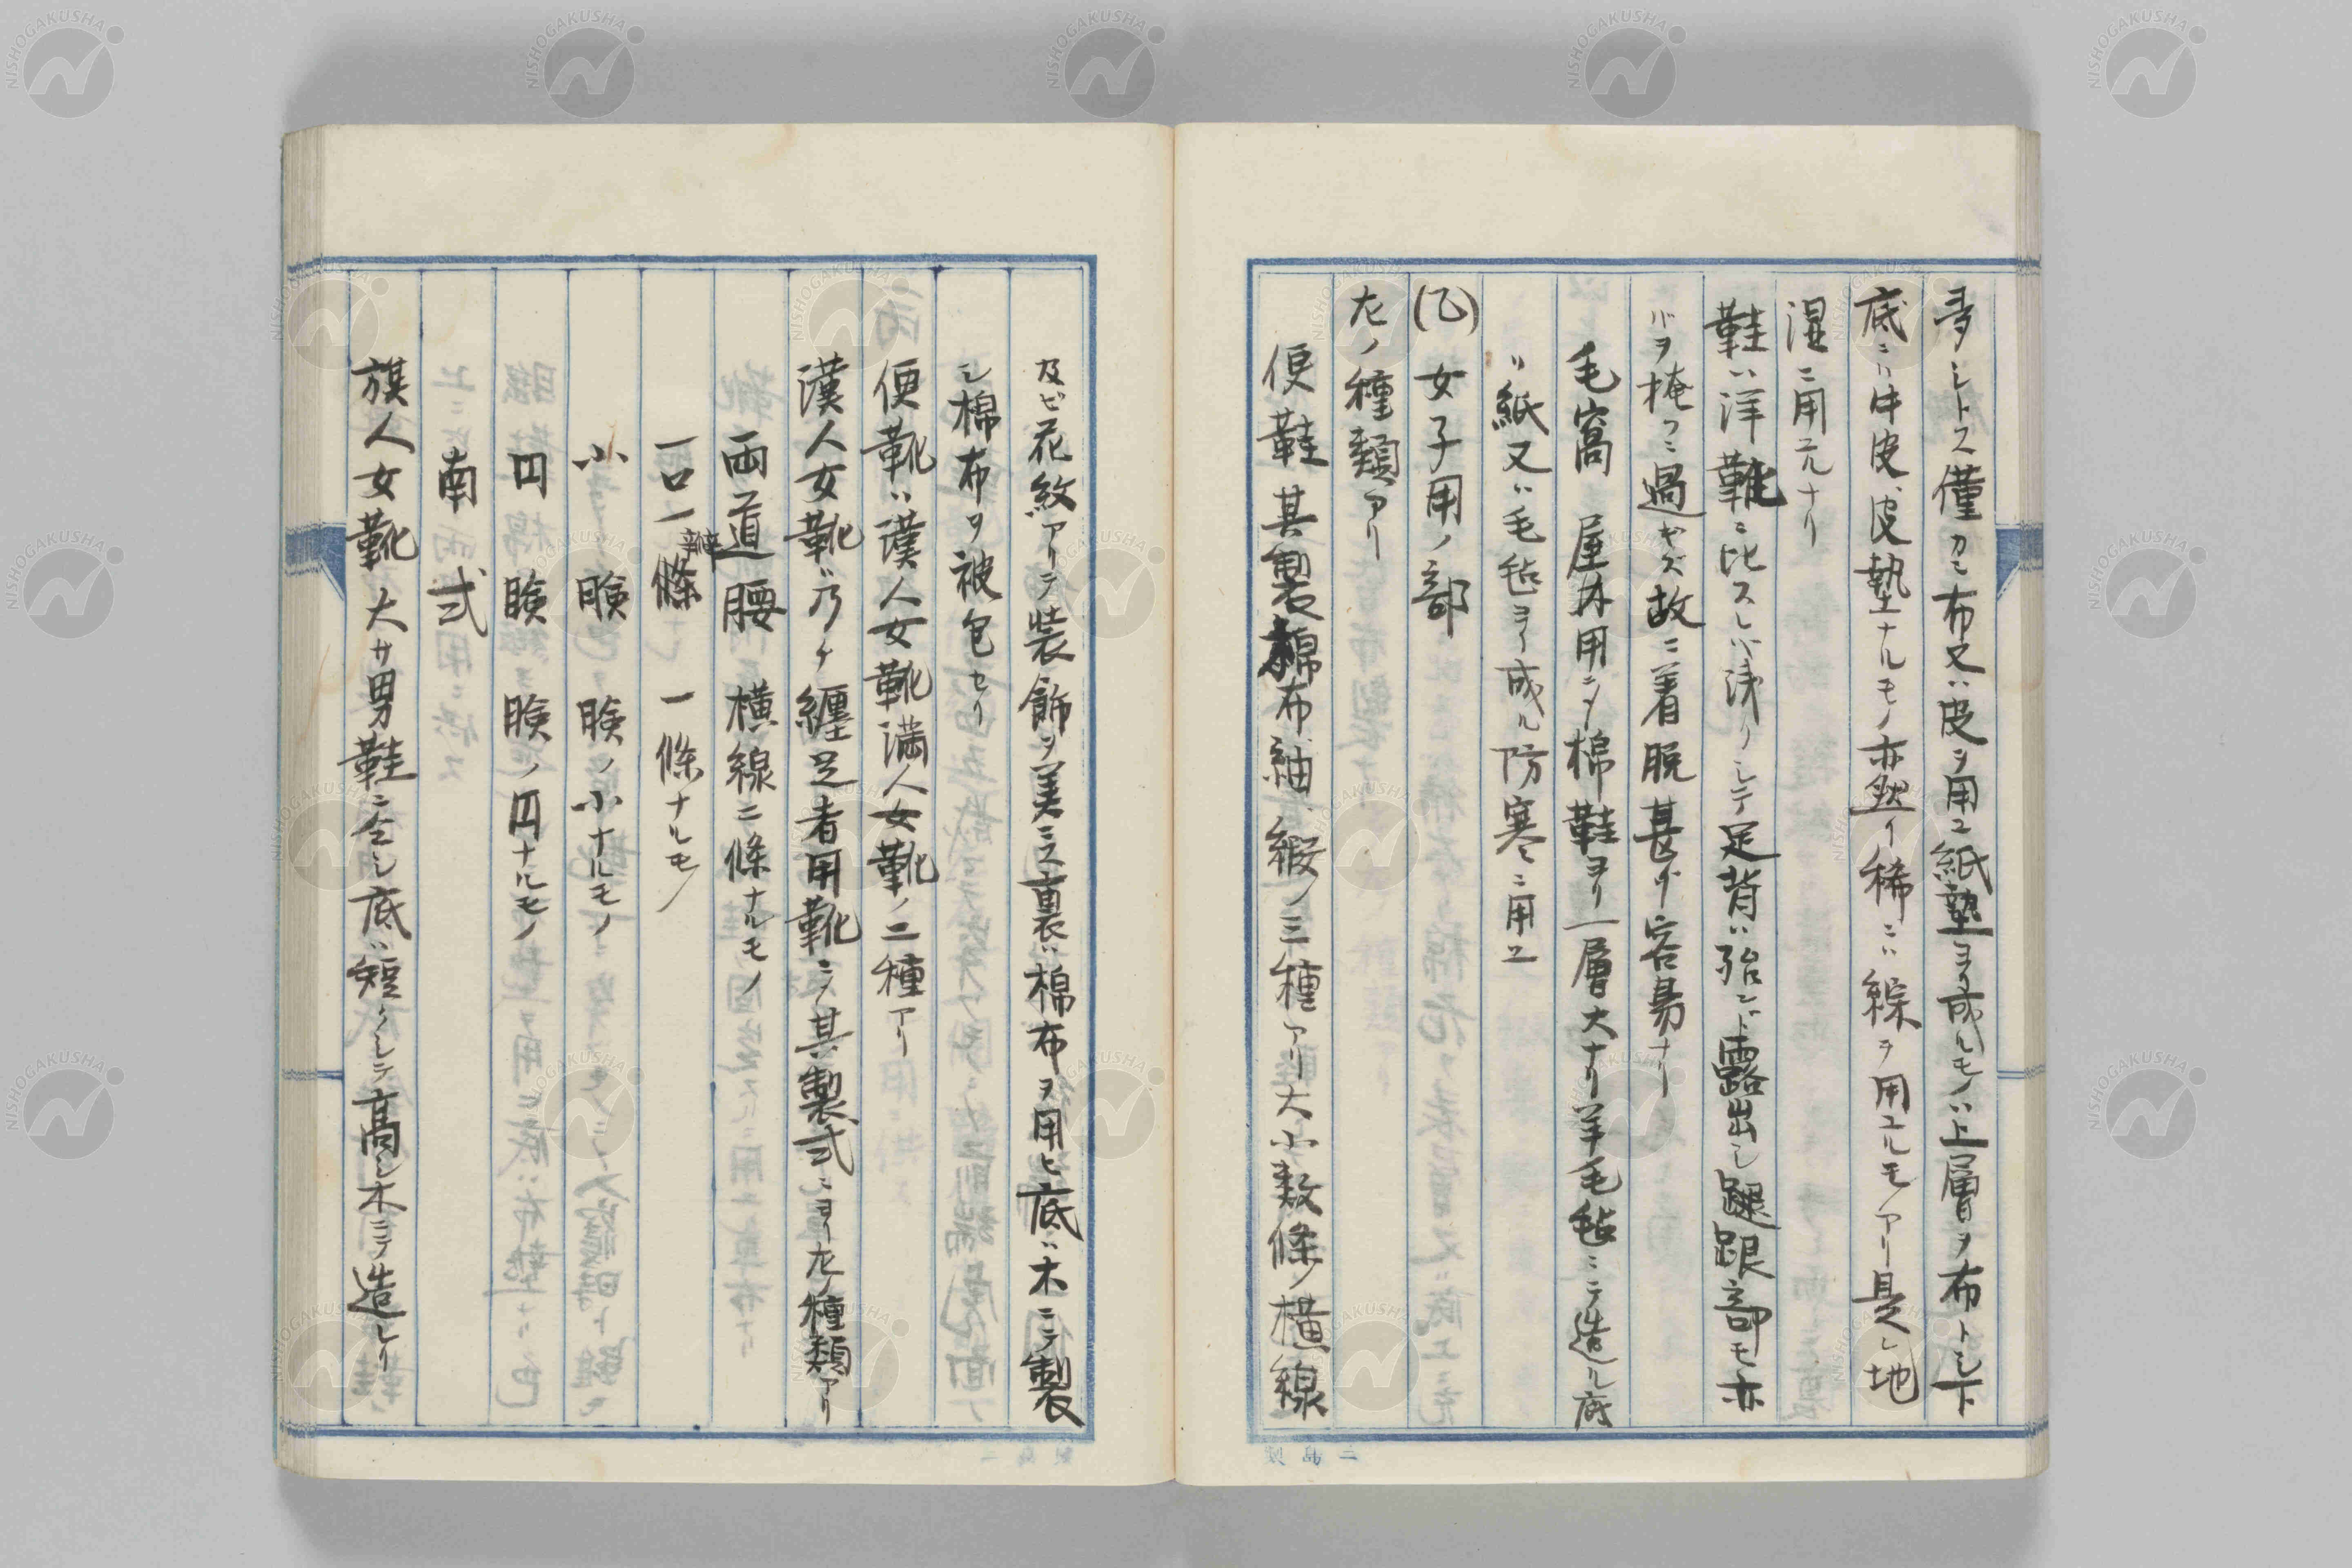 多シトス僅カニ布又ハ皮ヲ用ユ紙墊ヨリ成ルモノハ上層ヲ布トシ下
底ニハ牛皮、皮墊ナルモノ亦然リ稀ニハ線ヲ用ユルモアリ是レ地
湿ニ用元ナリ
鞋ハ洋靴ニ比スレバ浅クシテ足背ハ殆ンド露出シ踺跟部モ亦
バヲ掩フニ過ギズ故ニ着脱甚ダ容易ナリ
毛窩 屋外用ニシテ棉鞋ヨリ一層大ナリ羊毛毡ニテ造ル底
ハ紙又ハ毛毡ヨリ成ル防寒ニ用ユ
(乙)女子用ノ部
左ノ種類アリ
便鞋 其製棉布、紬、緞ノ三種アリ大小数條ノ横線
及ビ花紋アリテ装飾ヲ美ニス裏ハ棉布ヲ用ヒ底ハ木ニテ製
シ棉布ヲ被包セリ
便靴ハ漢人女靴満人女靴ノ二種アリ
漢人女靴ハ乃チ纏足者用靴ニテ其製式ニヨリ左ノ種類アリ
両道腰 横線二條ナルモノ
一口一條 一條ナルモノ
辮
小臉 臉ノ小ナルモノ
円臉 臉ノ円ナルモノ
南式
旗人女靴 大サ男鞋ニ仝シ底ハ短クシテ高シ木ニテ造レリ
二島製